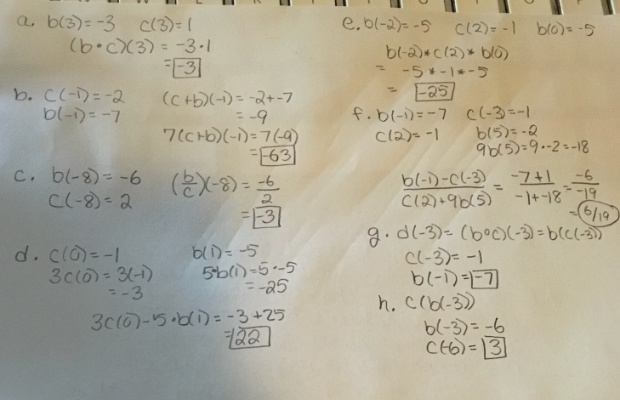 a. b(3)=-3 c(3)=1
(b•c)(3) = -3•1
= -3
b. c(-1)=-2 (c+b)(-1)=-2+-7
b(-1)=-7 = -9
7(c+b)(-1)=7(-9)
= -63
c. b(-8)=-6 (b/c)(-8)= -6/2
c(-8)=2 = -3
d. c(0)=-1 b(1)=-5
3c(0)=3(-1) 5•b(1)=5•-5
= -3 = -25
3c(0)-5•b(1)=-3+25
= 22
e. b(-2)=-5 c(2)=-1 b(0)=-5
b(-2)*c(2)*b(0)
= -5*-1*-5
= -25
f. b(-1)=-7 c(-3)=-1
c(2)=-1 b(5)=-2
9b(5)=9•-2=-18
b(-1)-c(-3)/c(2)+9b(5) = -7+1/-1+-18 = -6/-19
= 6/19
g. d(-3)=(boc)(-3)=b(c(-3))
c(-3)=-1
b(-1)= -7
h. c(b(-3))
b(-3)=-6
c(-6)= 3